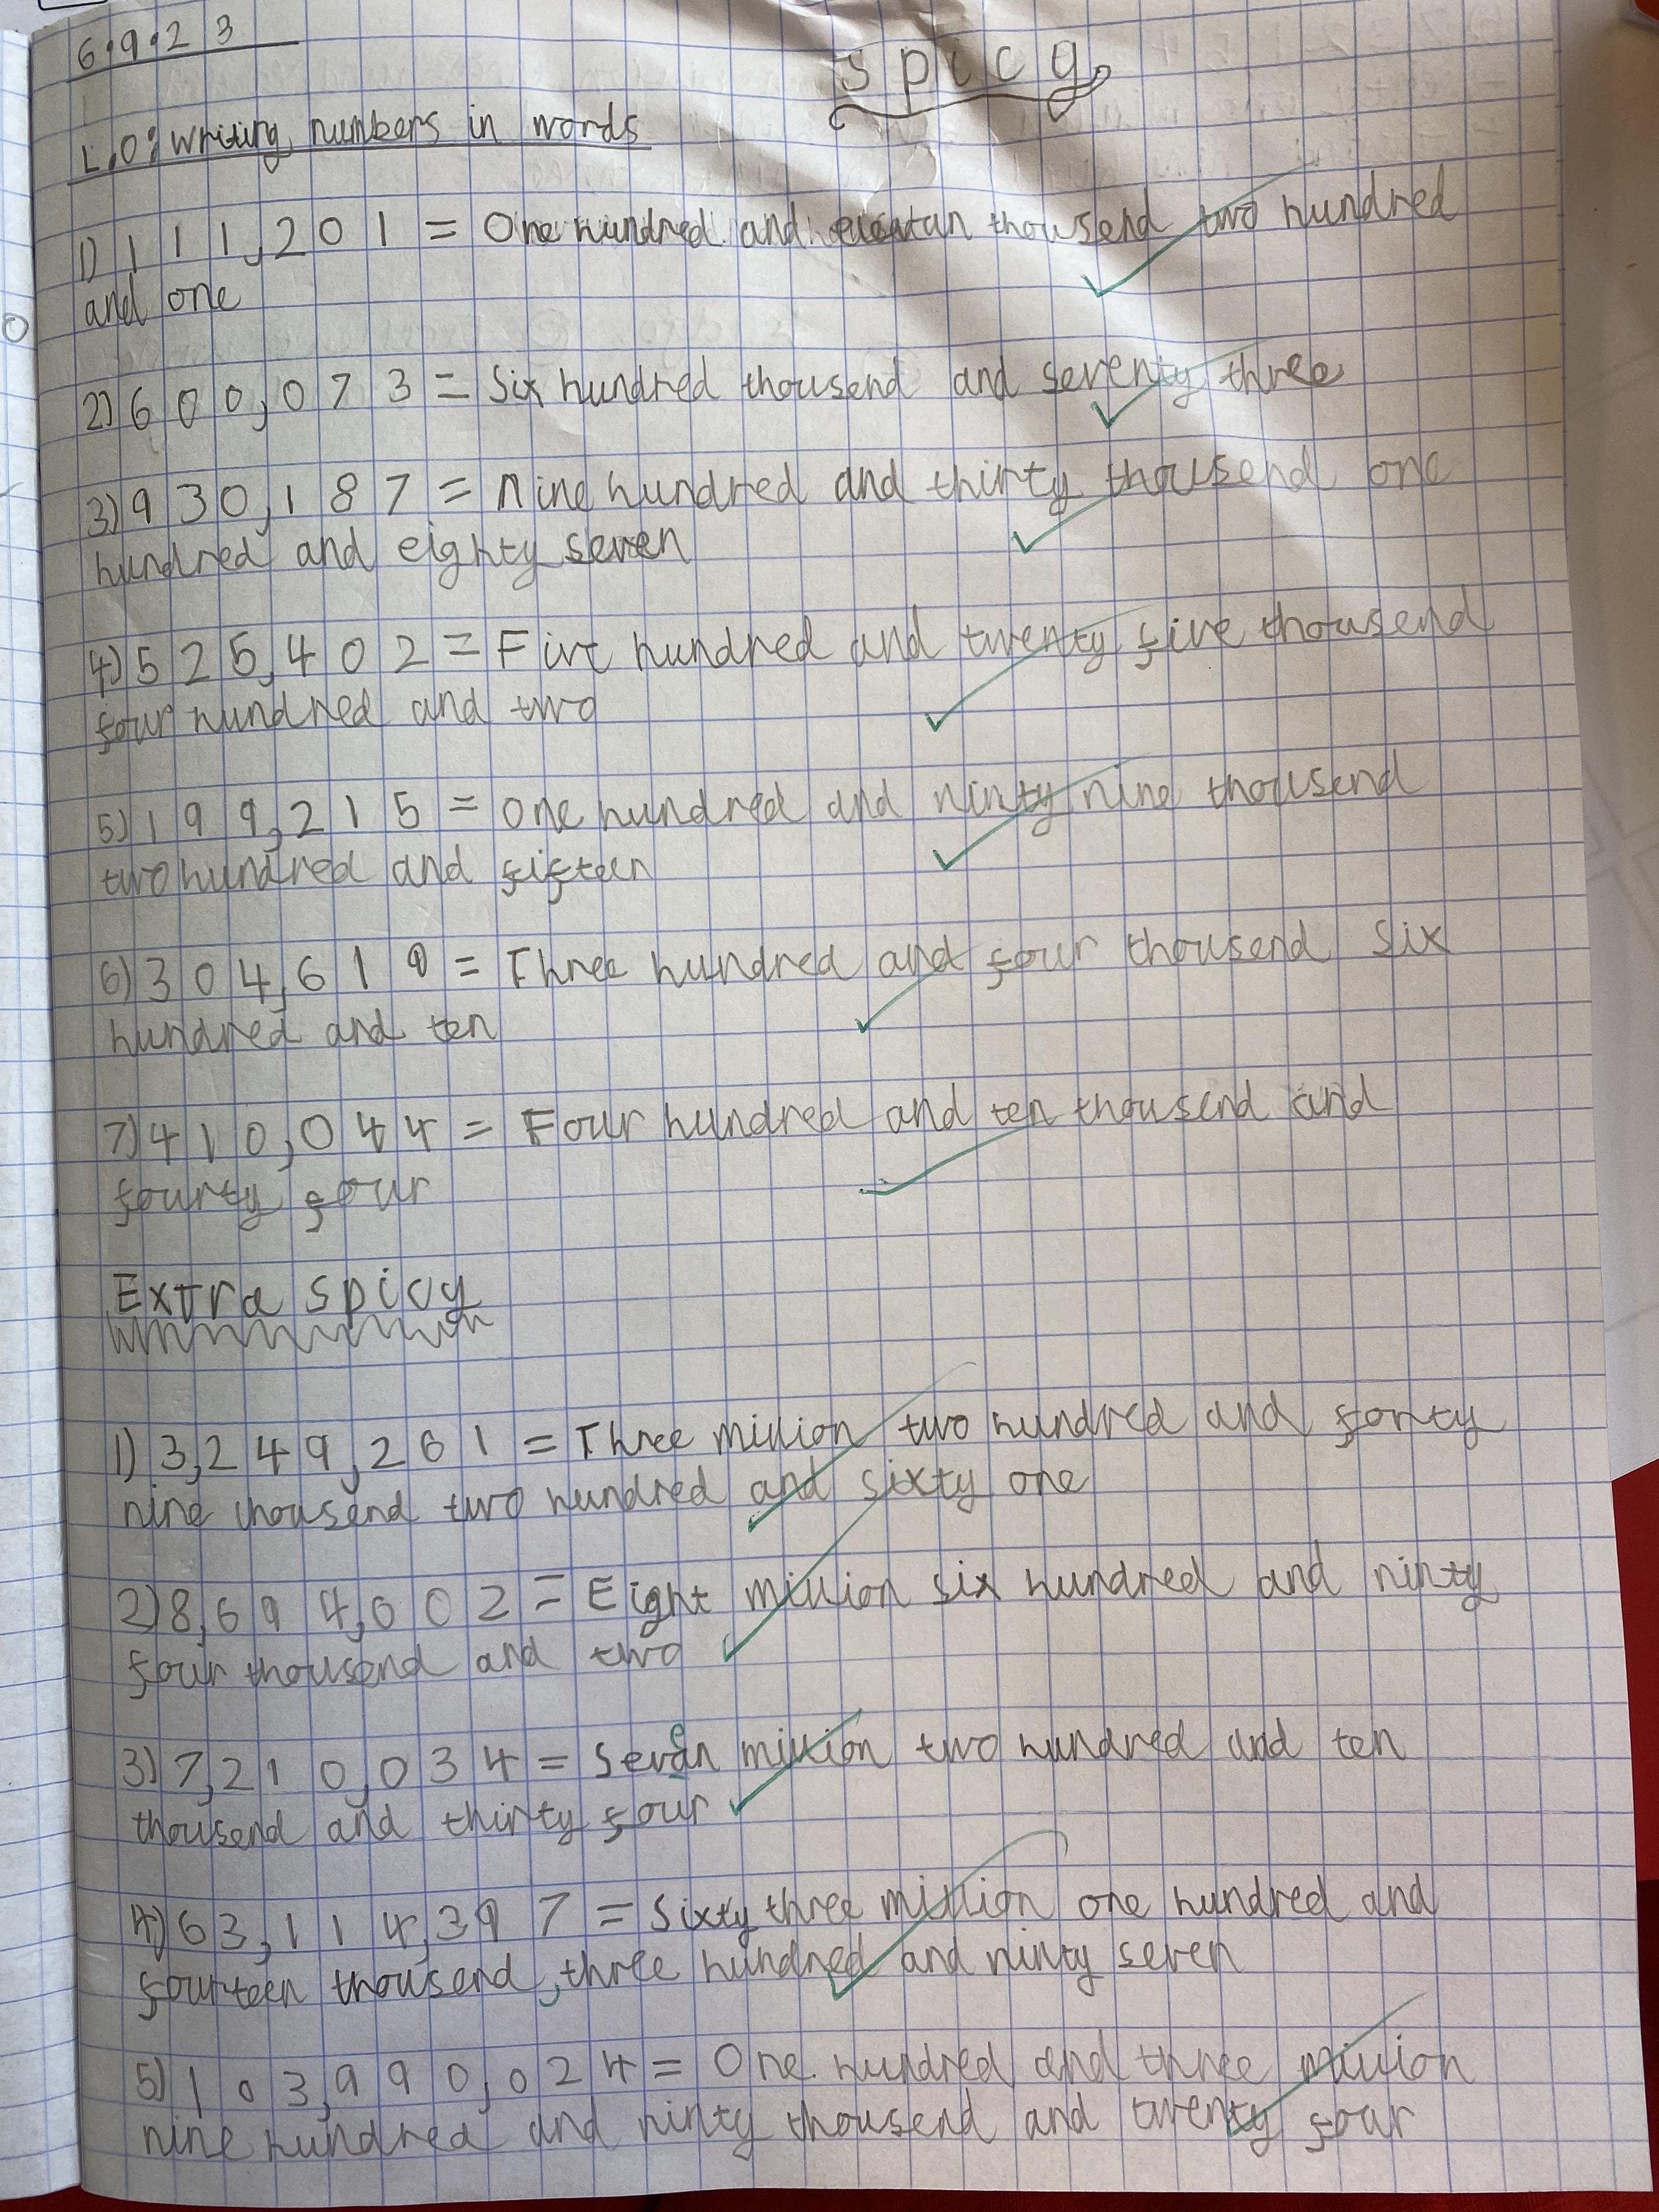 6.9.23
spicy
L.O: writing numbers in words
1) 111,201 = One hundred and thousend two hundred
and one
2) 600,073 = Six hundred thousend and seventy three
3) 930,187 = Nine hundred and thirty thousend one
hundred and eighty seven
4) 525,402 = Five hundred and twenty five thousend
four hundred and two
5) 199,215 = One hundred and ninty nine thousend
two hundred and fifteen
6) 304,610 = Three hundred and four thousend six
hundred and ten
7) 410,044 = Four hundred and ten thousend and
fourty four
Extra spicy
1) 3,249,261 = Three million two hundred and forty
nine thousend two hundred and sixty one
2) 8,694,002 = Eight million six hundred and ninty
four thousend and two
3) 7,210,034 = Seven million two hundred and ten
thousend and thirty four
4) 63,114,397 = Sixty three million one hundred and
fourteen thousend, three hundred and ninty seven
5) 103,990,024 = One hundred and three million
nine hundred and ninty thousend and twenty four